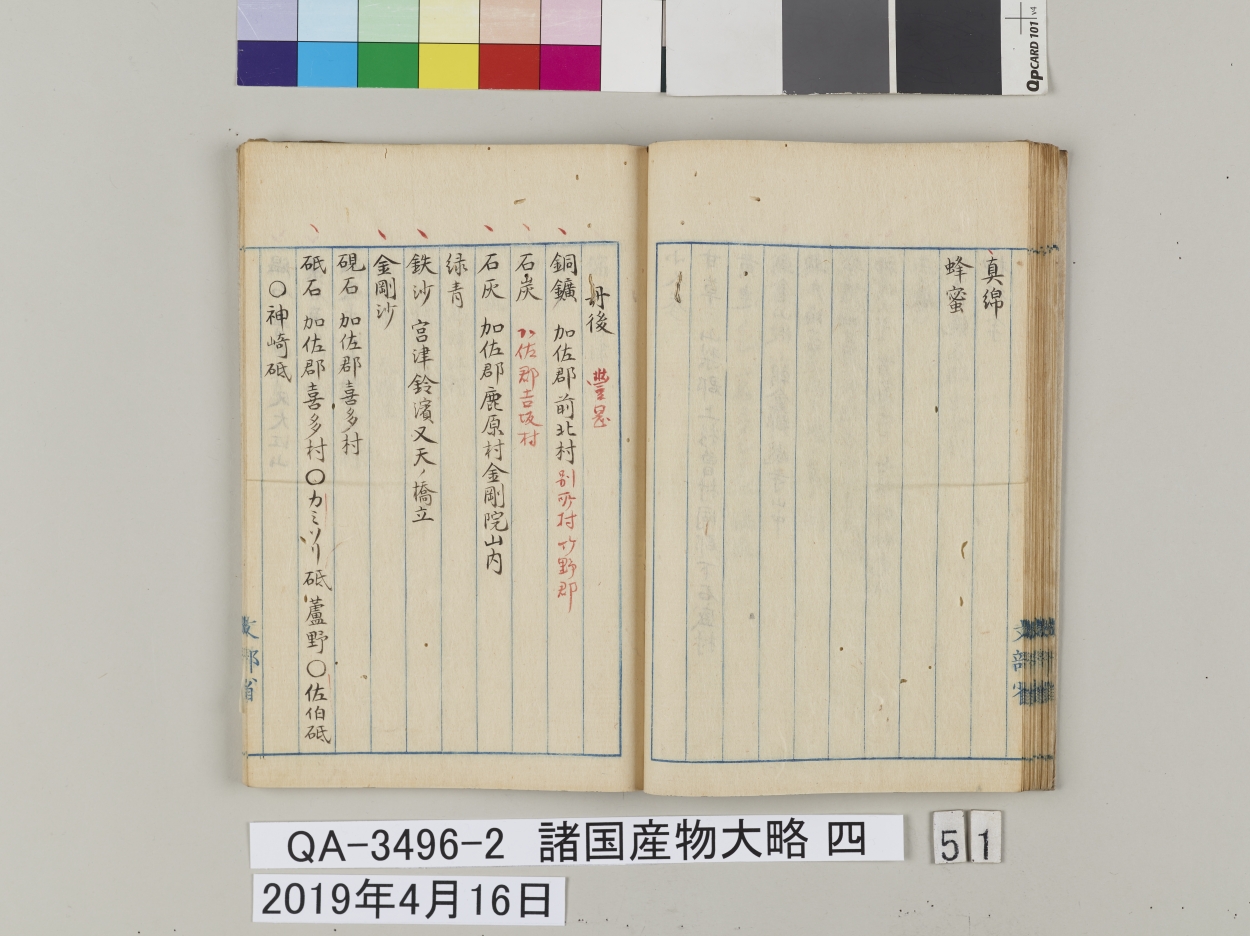 QPCARD 101 v4
真綿
蜂蜜
丹後
銅鑛 加佐郡前北村 別所村 竹野郡
石炭 加佐郡吉坂村
石灰 加佐郡鹿原村金剛院山内
緑青
鉄沙 宮津鈴濱又天ノ橋立
金剛沙
硯石 加佐郡喜多村
砥石 加佐郡喜多村〇カミソリ砥蘆野〇佐伯砥
〇神崎砥
文部省
文部省
QA-3496-2 諸国産物大略 四
51
2019年4月16日